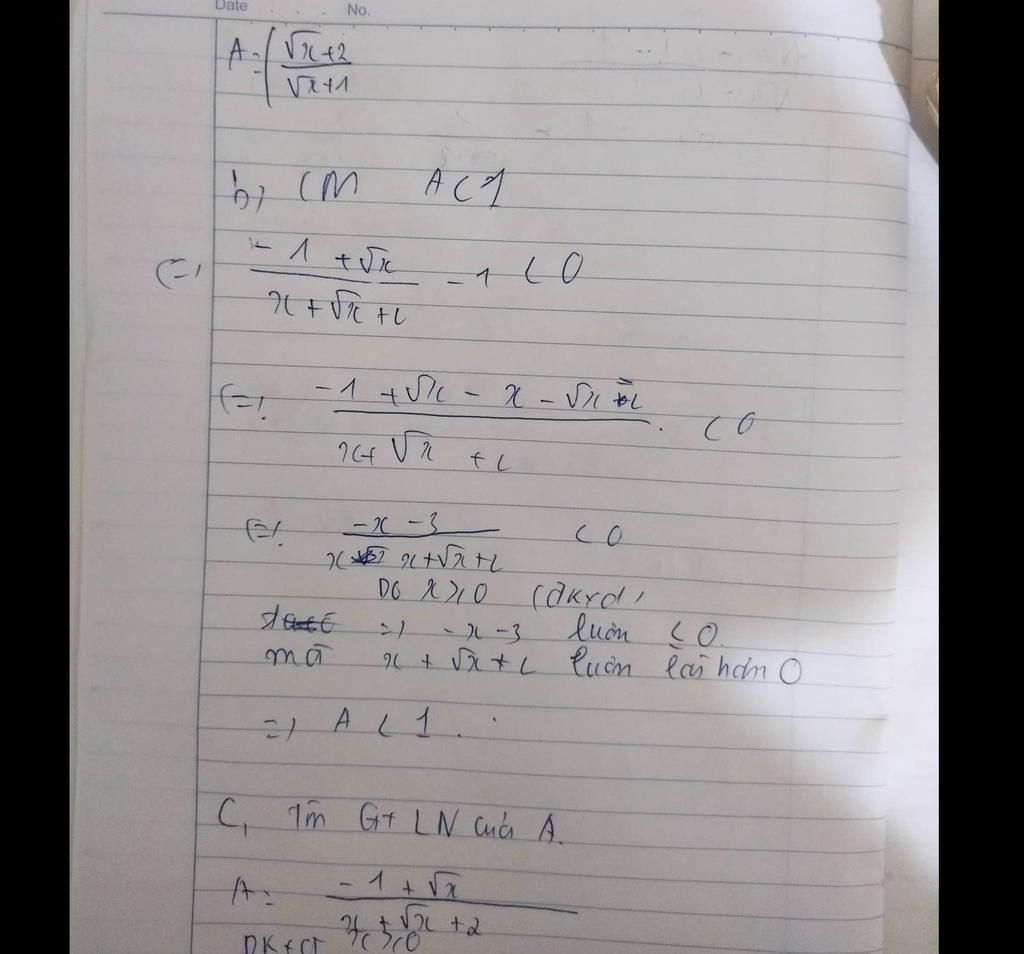 Date . . . No.
A = ( (√x+2)/(√x+1)
b, CM A < 1
(=) (-1 + √x)/(x + √x + 2) - 1 < 0
(=) (-1 + √x - x - √x - 2)/(x + √x + 2) < 0
(=) (-x - 3)/(x + √x + 2) < 0
Do x ≥ 0 (đkxđ)
=) -x - 3 luôn < 0.
mà x + √x + 2 luôn lớn hơn 0
=) A < 1.
C, Tìm GT LN của A.
A = (-1 + √x)/(x + √x + 2)
x ≥ 0